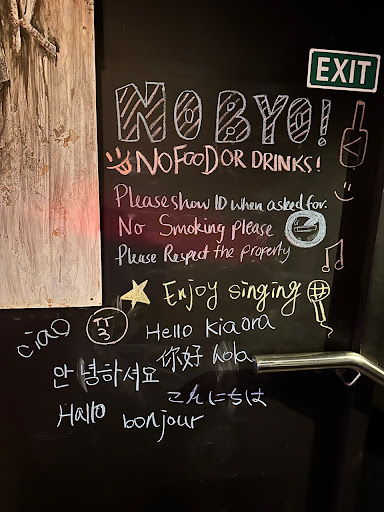 EXIT
NO BYO!
NO FOOD OR DRINKS!
Please show ID when asked for.
No Smoking please
Please Respect the property
Enjoy singing
ciao
Hello Kiaora
你好 hola
안녕하셔요
こんにちは
Hallo
bonjour